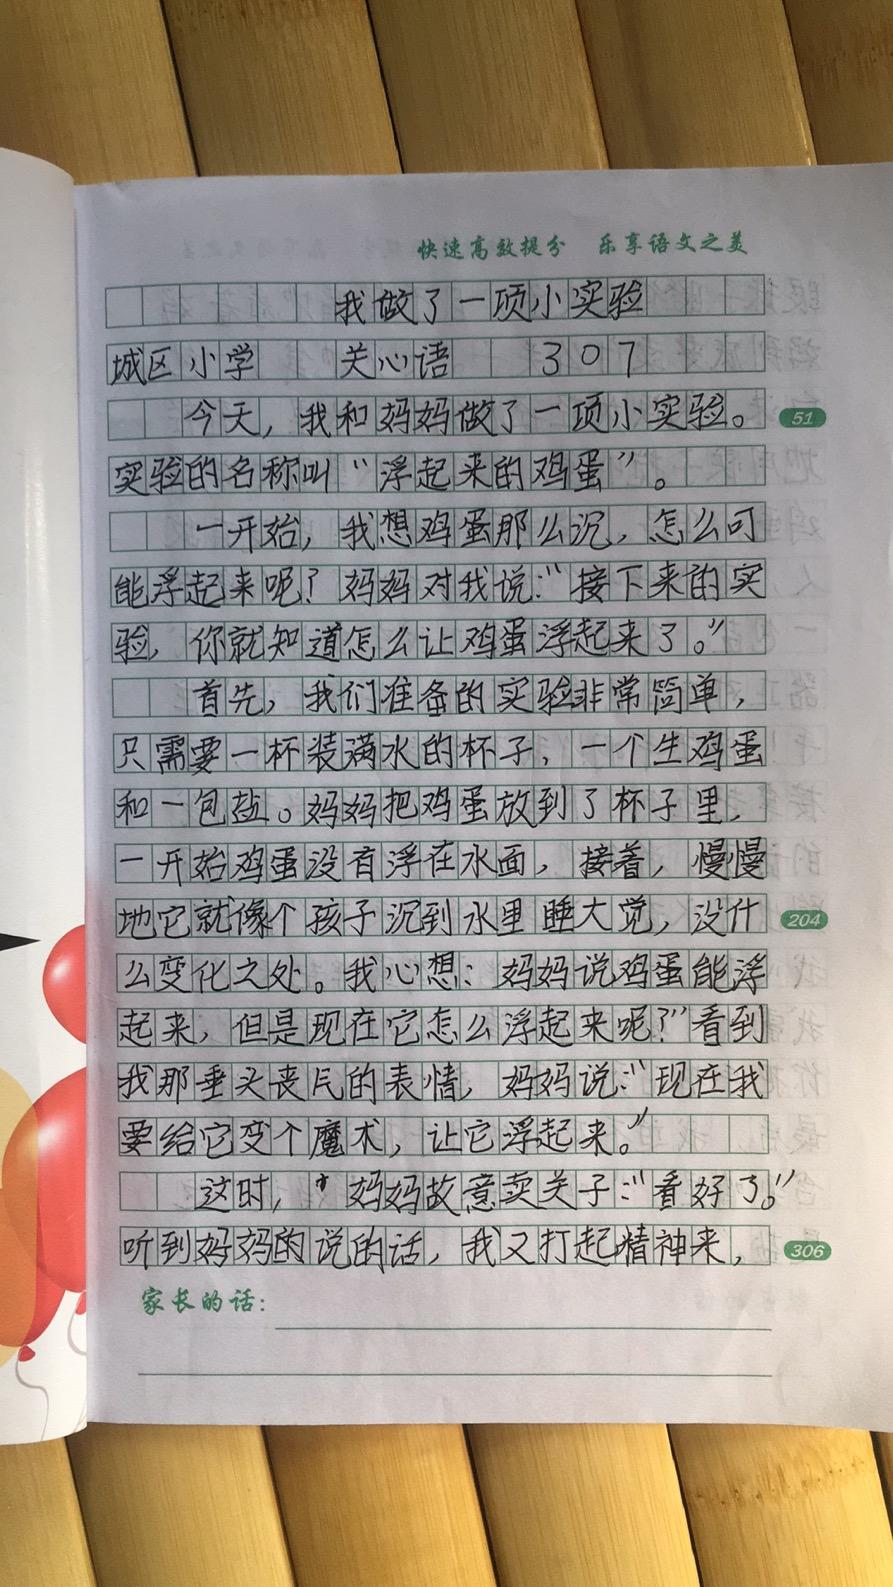 快速高效提分 乐享语文之美
我做了一项小实验
城区小学 关心语 307
今天，我和妈妈做了一项小实验。
51
实验的名称叫“浮起来的鸡蛋”。
一开始，我想鸡蛋那么沉，怎么可
能浮起来呢？妈妈对我说：“接下来的实
验，你就知道怎么让鸡蛋浮起来了。”
首先，我们准备的实验非常简单，
只需要一杯装满水的杯子，一个生鸡蛋
和一包盐。妈妈把鸡蛋放到了杯子里，
一开始鸡蛋没有浮在水面，接着，慢慢
地它就像个孩子沉到水里睡大觉，没什
204
么变化之处。我心想：妈妈说鸡蛋能浮
起来，但是现在它怎么浮起来呢？”看到
我那垂头丧气的表情，妈妈说：“现在我
要给它变个魔术，让它浮起来。”
这时，妈妈故意卖关子：“看好了。”
听到妈妈的说的话，我又打起精神来，
306
家长的话：